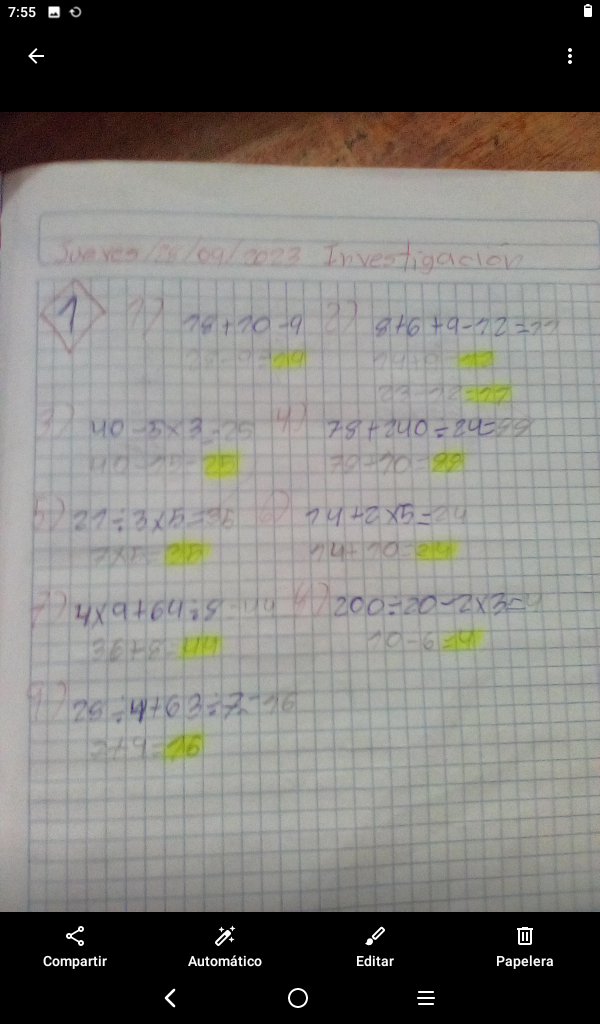 7:55
Jueves / /09/2023 Investigación
1 1) 18+10-9 2) 8+6+9-12=11
=19 14+9
23-12=11
3) 40-5×3=25 4) 78+240÷24=88
40-15=25 78+10=88
5) 21÷3×5=35 6) 14+2×5=24
7×5=35 14+10=24
7) 4×9+64÷8=44 200÷20-2×3=4
36+8=44 10-6=4
9) 28÷4+63÷7=16
7+9=16
Compartir Automático Editar Papelera